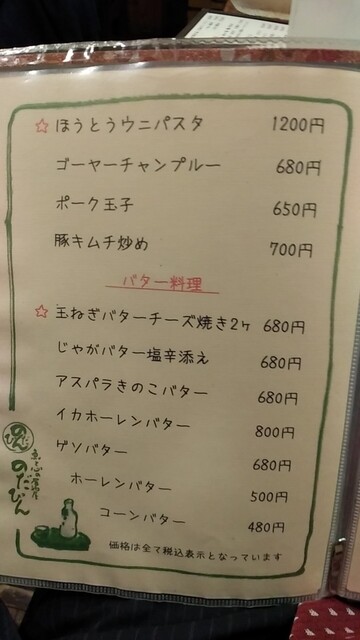 ☆ ほうとうウニパスタ 1200円
ゴーヤーチャンプルー 680円
ポーク玉子 650円
豚キムチ炒め 700円
バター料理
☆ 玉ねぎバターチーズ焼き2ヶ 680円
じゃがバター塩辛添え 680円
アスパラきのこバター 680円
イカホーレンバター 800円
ゲソバター 680円
ホーレンバター 500円
コーンバター 480円
価格は全て税込表示となっています
のたびん